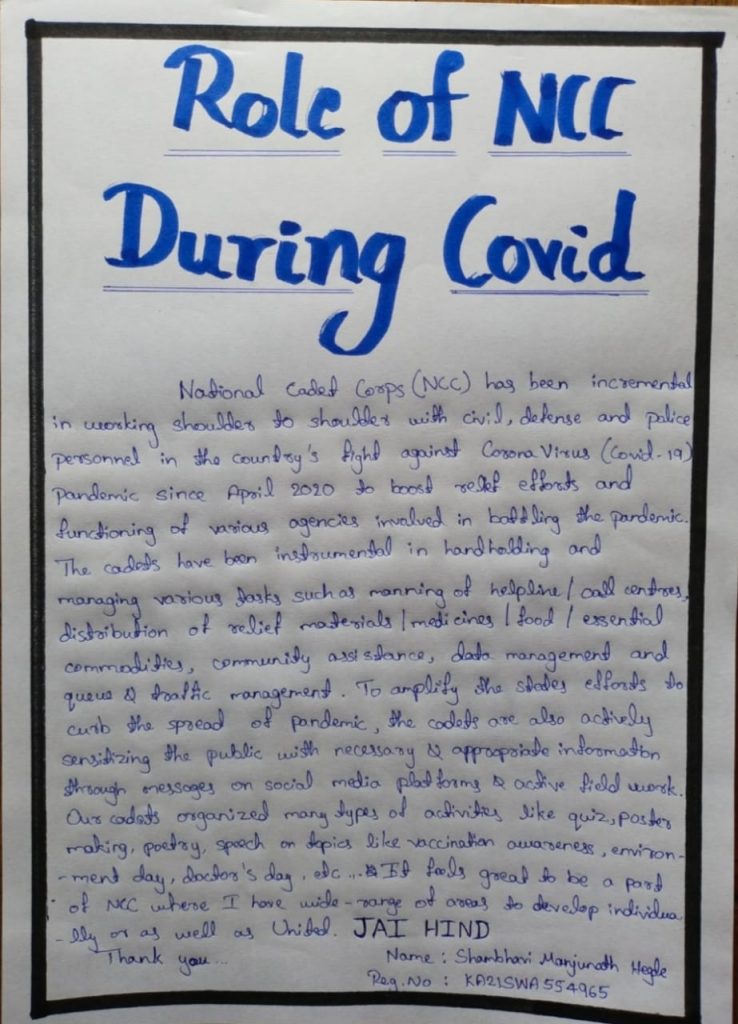 Role of NCC
During Covid
National Cadet Corps (NCC) has been incremental
in working shoulder to shoulder with civil, defense and police
personnel in the country's fight against Corona Virus (Covid-19)
pandemic since April 2020 to boost relief efforts and
functioning of various agencies involved in battling the pandemic.
The cadets have been instrumental in handholding and
managing various tasks such as manning of helpline/ call centres,
distribution of relief materials/medicines/food/essential
commodities, community assistance, data management and
queue & traffic management. To amplify the states efforts to
curb the spread of pandemic, the cadets are also actively
sensitizing the public with necessary & appropriate information
through messages on social media platforms & active field work.
Our cadets organized many types of activities like quiz, poster
making, poetry, speech on topics like vaccination awareness, environ-
-ment day, doctor's day, etc... It feels great to be a part
of NCC where I have wide-range of areas to develop individua
-lly or as well as United. JAI HIND
Thank you...
Name : Shambhavi Manjunath Hegde
Reg.No : KA21SWA554965